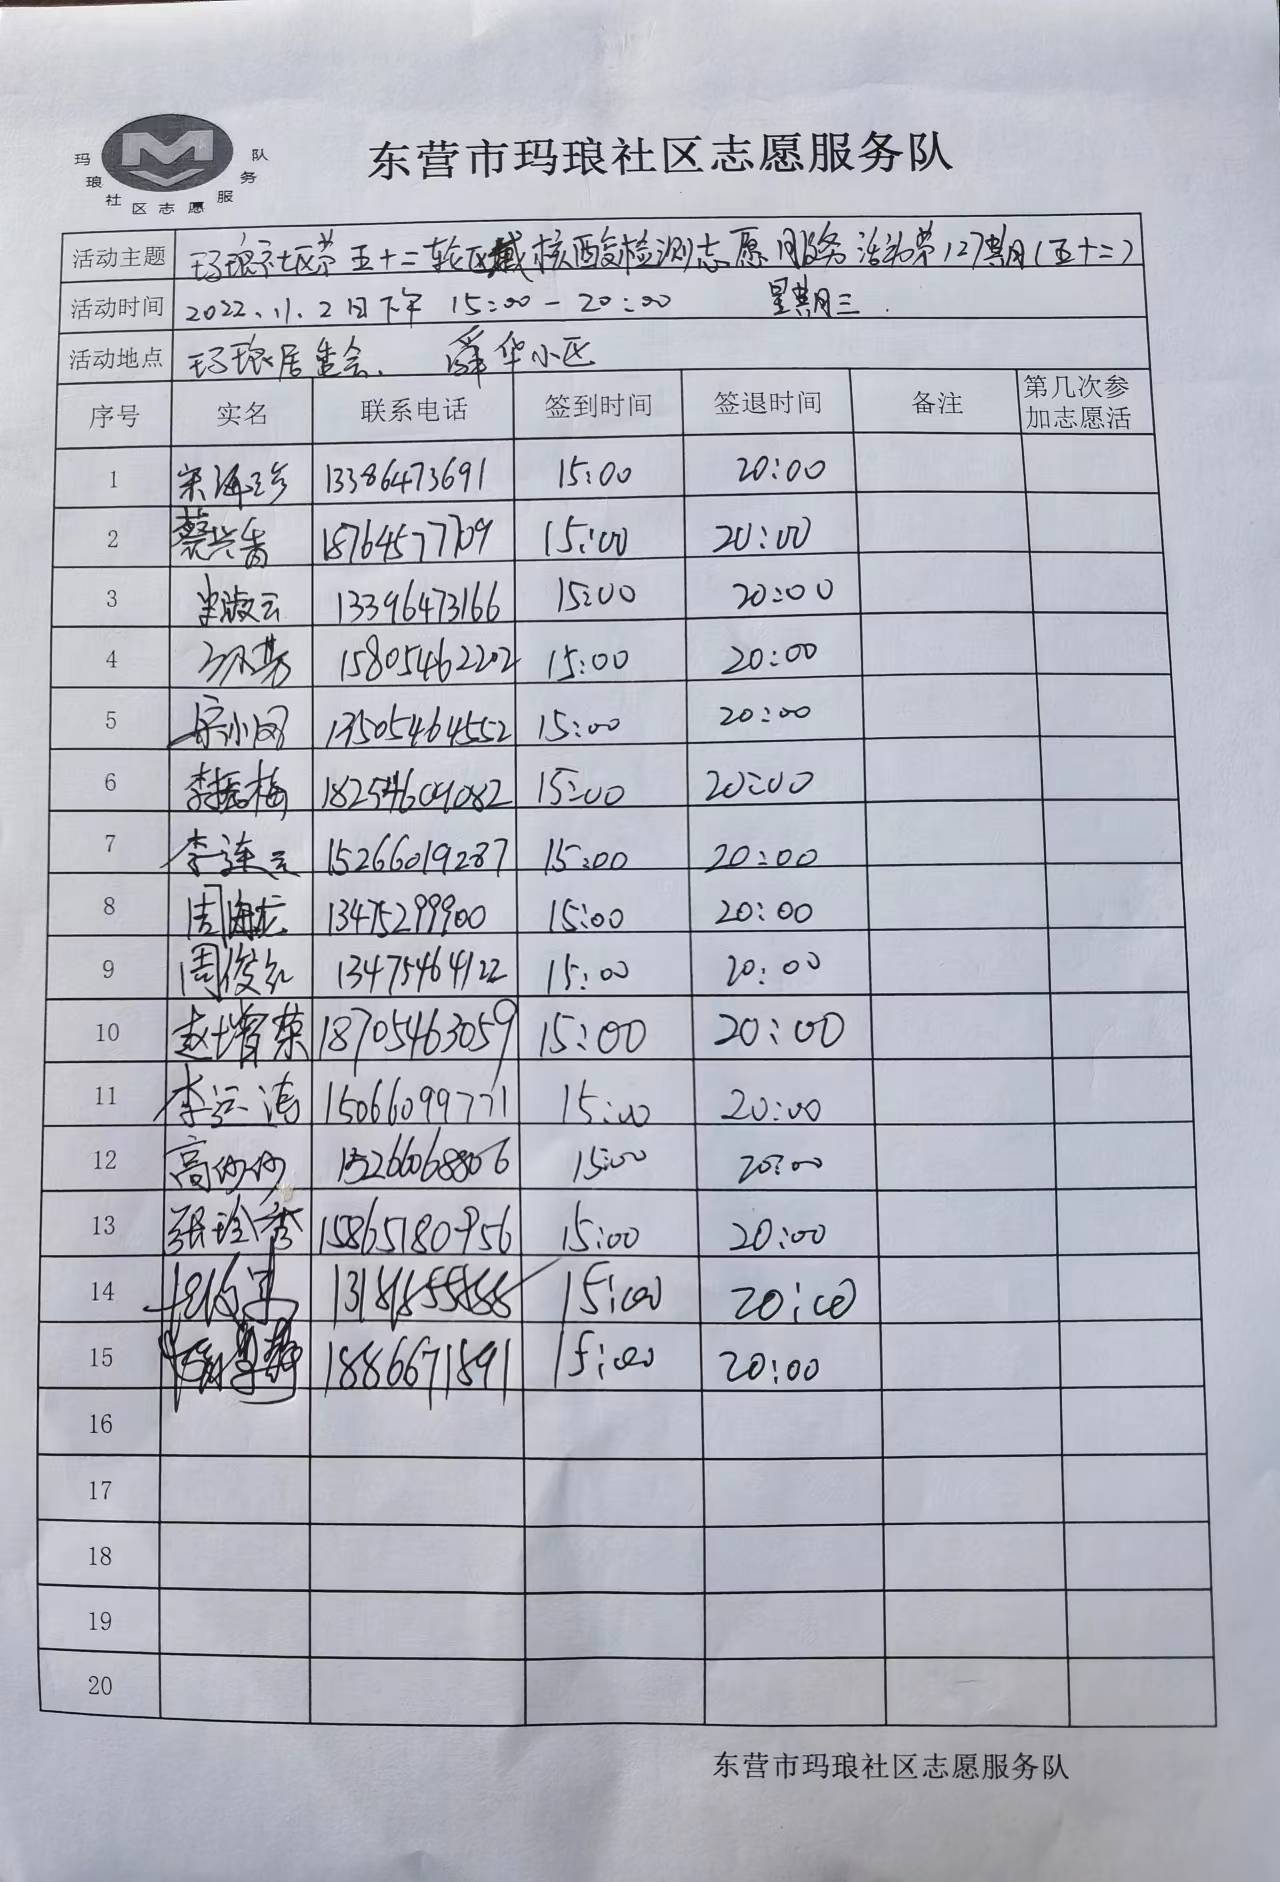 玛琅社区志愿服务队
东营市玛琅社区志愿服务队
活动主题 玛琅社区第五十二轮区域核酸检测志愿服务活动第127期(五十二)
活动时间 2022.11.2日下午 15:00-20:00 星期三.
活动地点 玛琅居委会、舜华小区
序号 实名 联系电话 签到时间 签退时间 备注 第几次参
加志愿活
1 宋海珍 13386473691 15:00 20:00
2 蔡兴香 18764577709 15:00 20:00
3 淑云 13396473166 15:00 20:00
4 15805462202 15:00 20:00
5 小凤 13505464552 15:00 20:00
6 李振梅 18254609082 15:00 20:00
7 李连云 15266019287 15:00 20:00
8 周海龙 13475299900 15:00 20:00
9 周俊红 13475464122 15:00 20:00
10 赵增荣 18705463059 15:00 20:00
11 李运涛 15066099771 15:00 20:00
12 高妙妙 15266068806 15:00 20:00
13 张玲秀 15865180956 15:00 20:00
14 15:00 20:00
15 1886671891 15:00 20:00
16
17
18
19
20
东营市玛琅社区志愿服务队